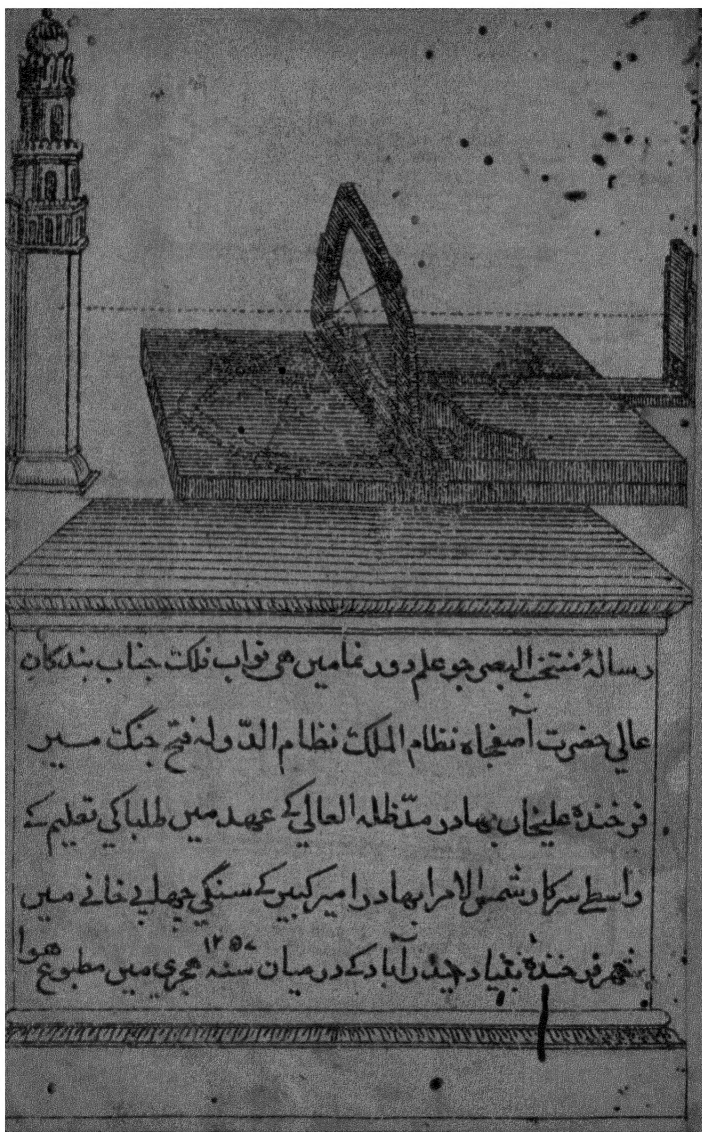 رسالۂ منتخب البصر جو علم دور نما میں هی نواب فلک جناب بندکان
عالي حضرت آصفجاه نظام الملک نظام الدّوله فتح جنگ میر
فرخندہ علیخاں بهادر مدّ ظله العالي کے عهد میں طلبا کي تعلیم کے
واسطے سرکار شمس الامرا بهادر امیر کبیر کے سنگي چهاپے خانے میں
شهر فرخندہ بنیاد حیدرآباد کے درمیان سنہ ۱۲۵۷ هجري میں مطبوع هوا